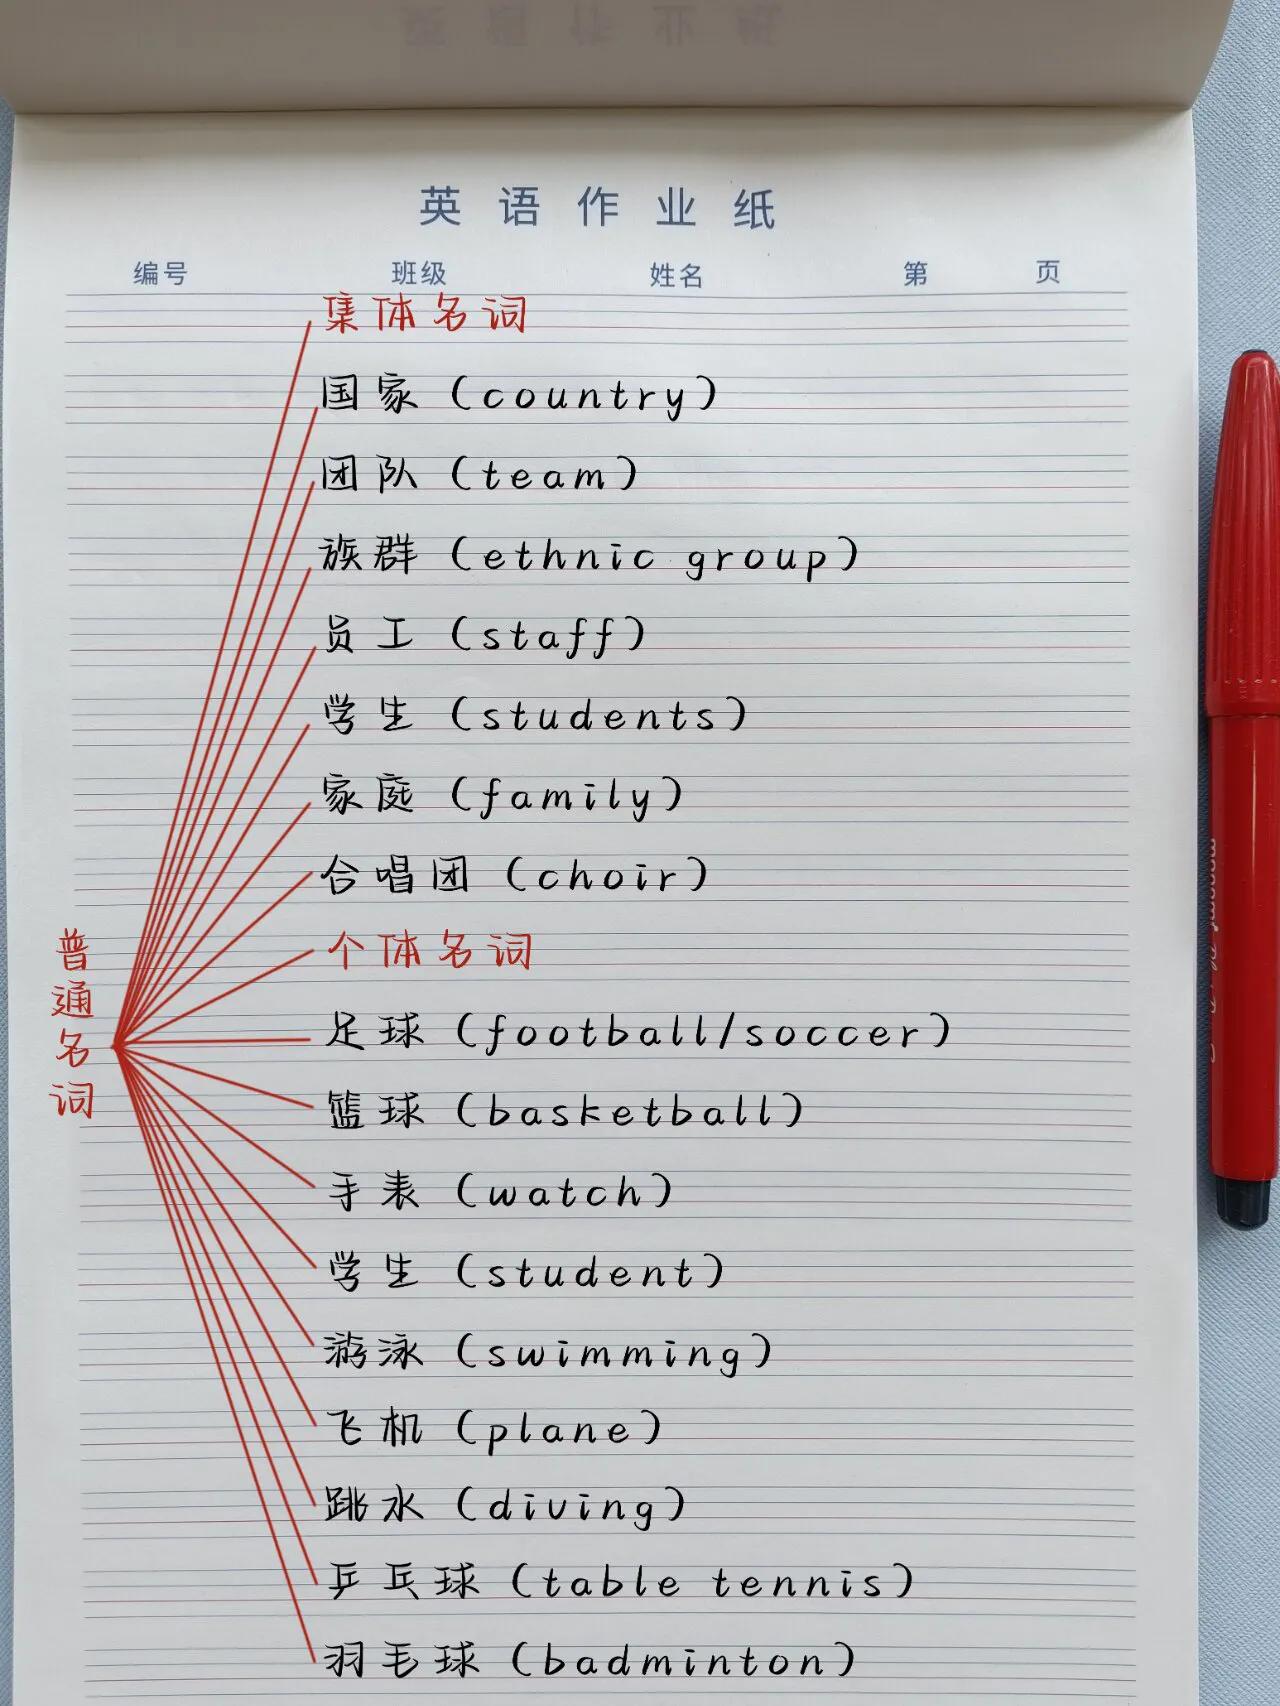 英语作业纸
编号 班级 姓名 第 页
集体名词
国家（country）
团队（team）
族群（ethnic group）
员工（staff）
学生（students）
家庭（family）
合唱团（choir）
普通名词
个体名词
足球（football/soccer）
篮球（basketball）
手表（watch）
学生（student）
游泳（swimming）
飞机（plane）
跳水（diving）
乒乓球（table tennis）
羽毛球（badminton）